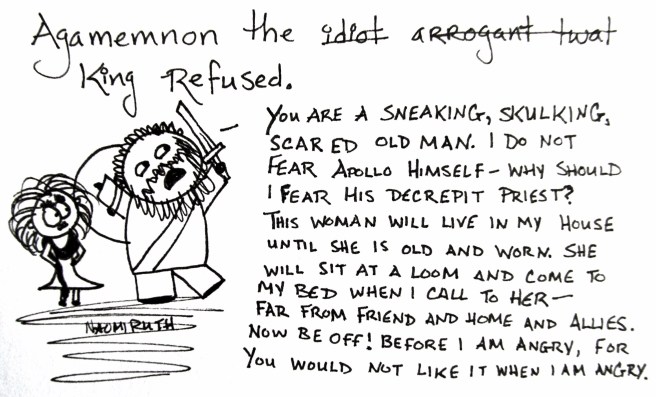 Agamemnon the idiot arrogant twat
King Refused.
YOU ARE A SNEAKING, SKULKING,
SCARED OLD MAN. I DO NOT
FEAR APOLLO HIMSELF - WHY SHOULD
I FEAR HIS DECREPIT PRIEST?
THIS WOMAN WILL LIVE IN MY HOUSE
UNTIL SHE IS OLD AND WORN. SHE
WILL SIT AT A LOOM AND COME TO
MY BED WHEN I CALL TO HER —
FAR FROM FRIEND AND HOME AND ALLIES.
NOW BE OFF! BEFORE I AM ANGRY, FOR
YOU WOULD NOT LIKE IT WHEN I AM ANGRY.
NAOMI RUTH